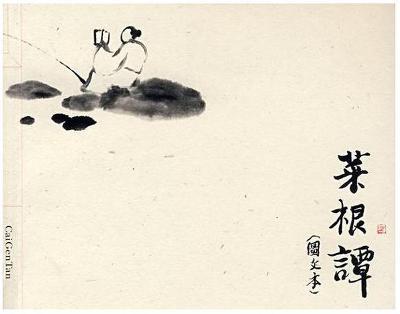 菜根譚
(圖文本)
CaiGenTan